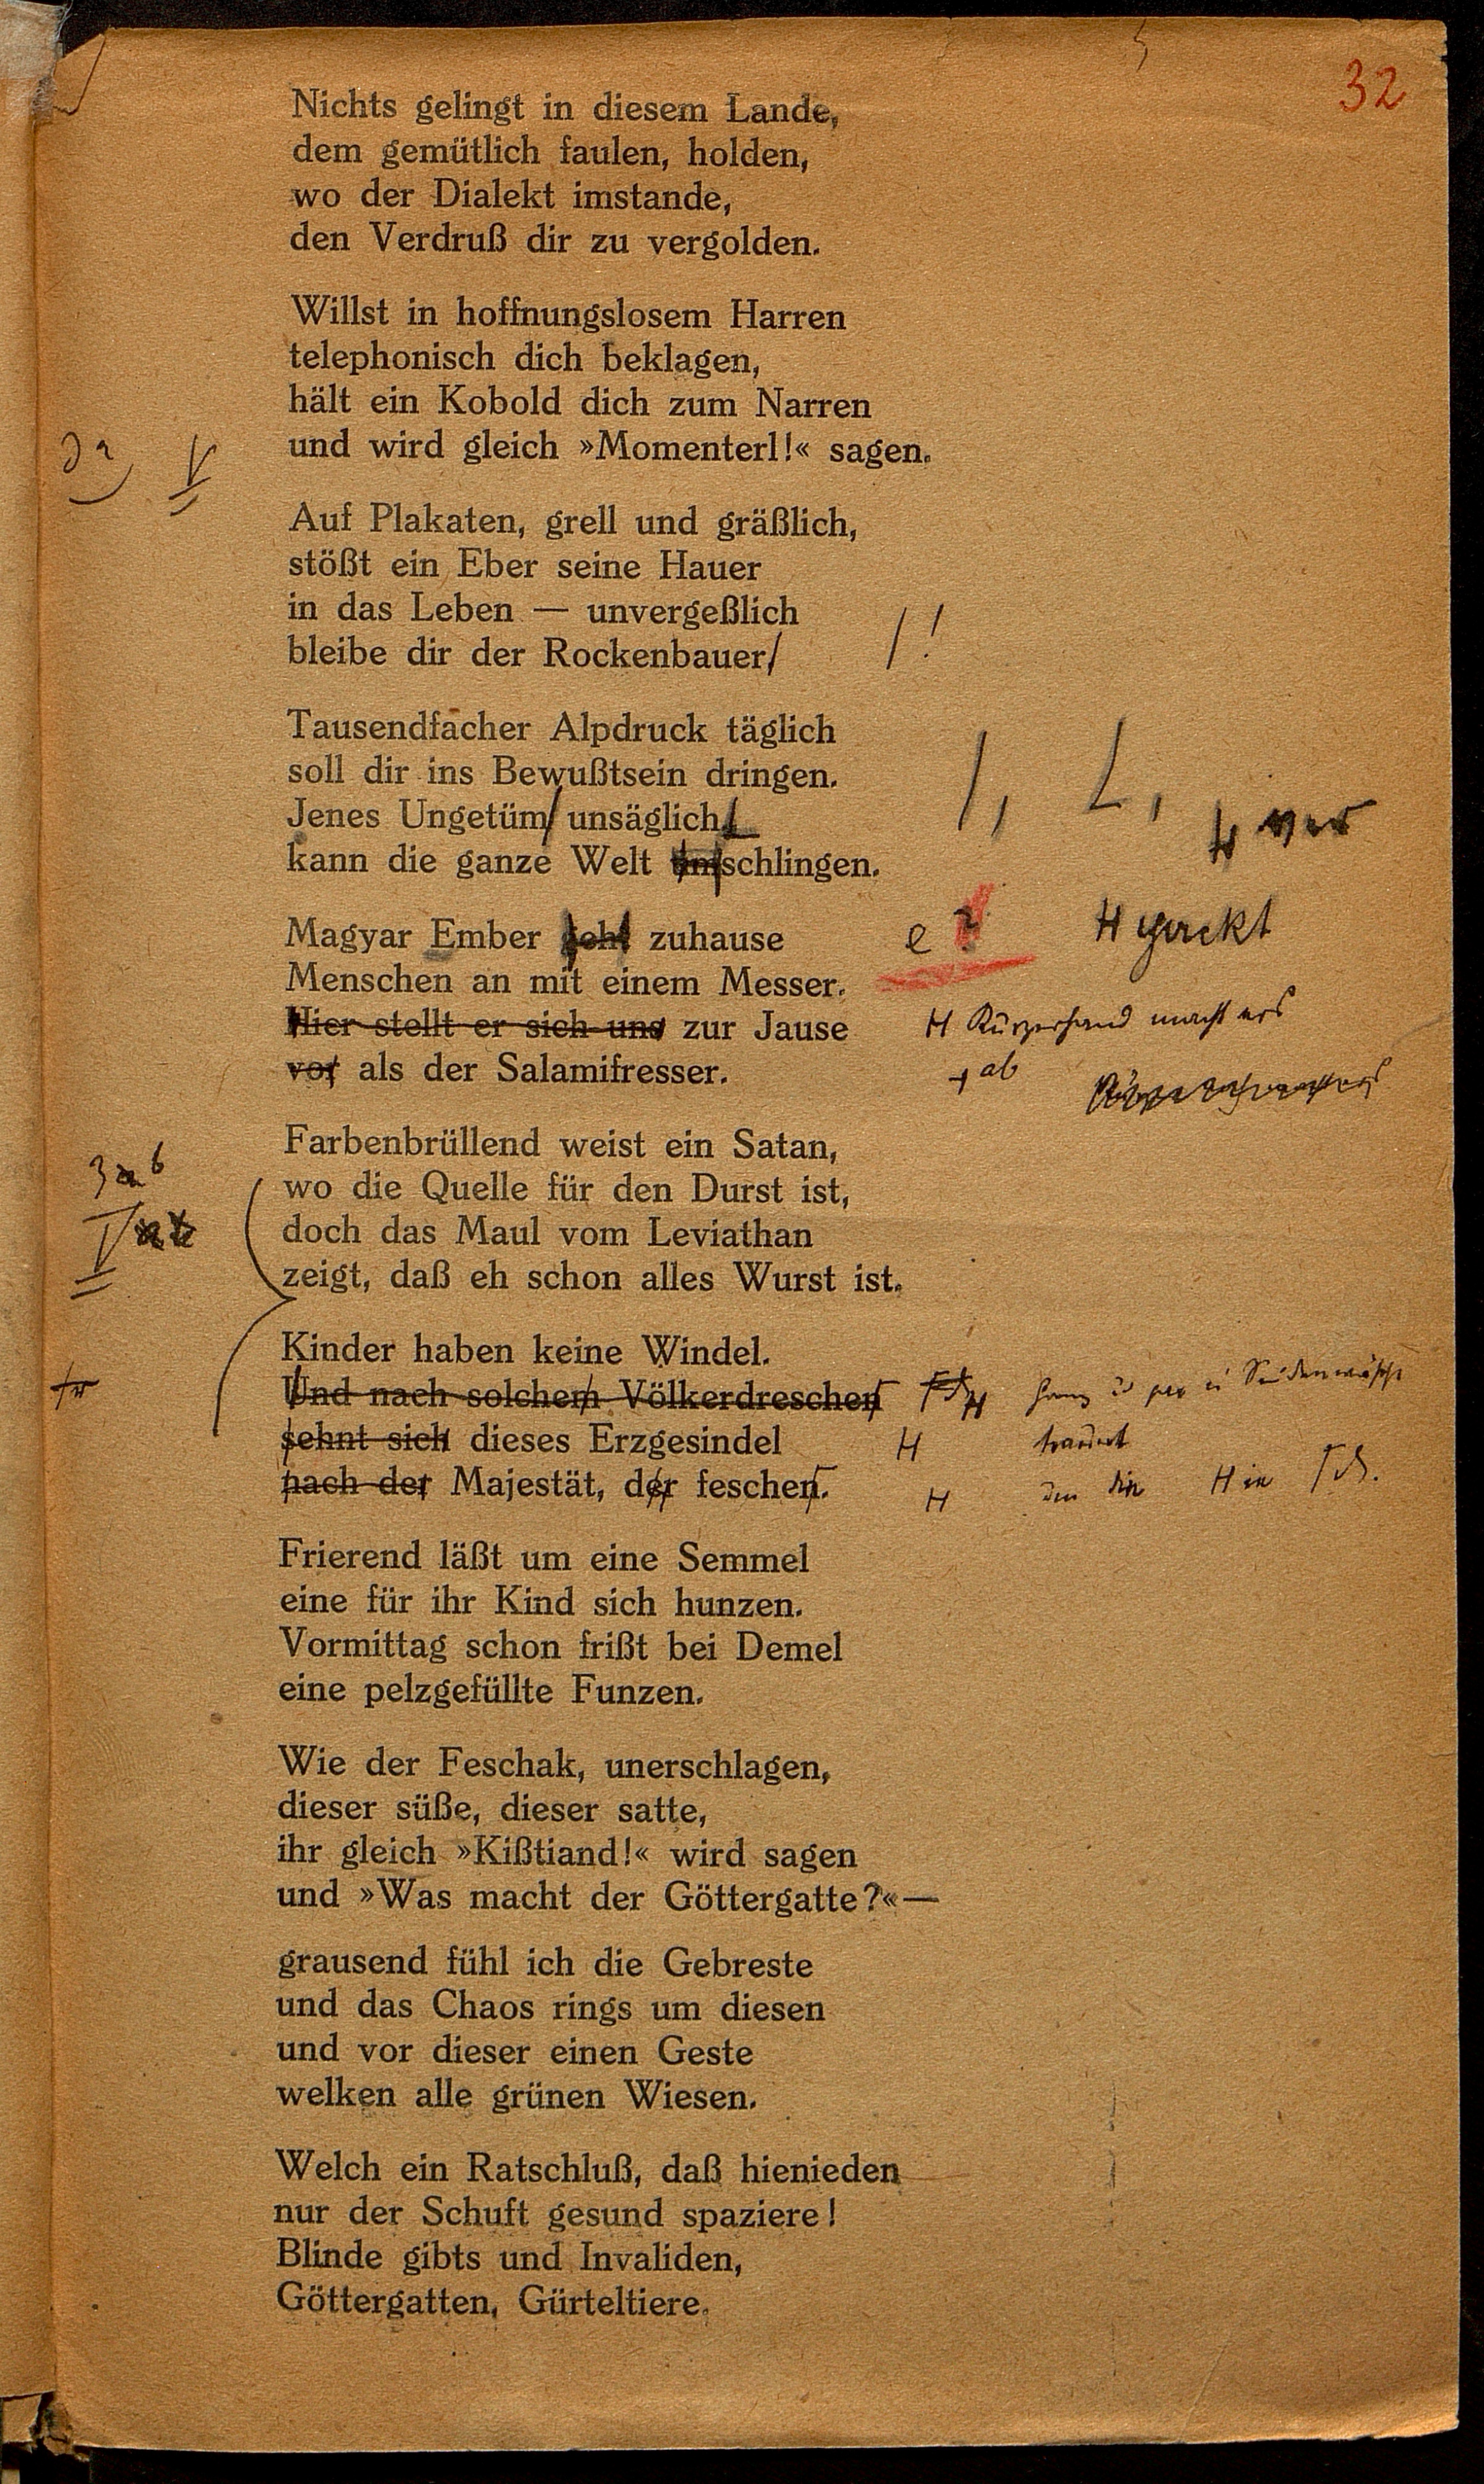 32
Nichts gelingt in diesem Lande,
dem gemütlich faulen, holden,
wo der Dialekt imstande,
den Verdruß dir zu vergolden.
Willst in hoffnungslosem Harren
telephonisch dich beklagen,
hält ein Kobold dich zum Narren
und wird gleich »Momenterl!« sagen.
V
Auf Plakaten, grell und gräßlich,
stößt ein Eber seine Hauer
in das Leben — unvergeßlich
bleibe dir der Rockenbauer/ /!
Tausendfacher Alpdruck täglich
soll dir ins Bewußtsein dringen.
Jenes Ungetüm/ unsäglich, /,
kann die ganze Welt umschlingen. ver
Magyar Ember geht zuhause e ?
Menschen an mit einem Messer.
Hier stellt er sich uns zur Jause Kürzerhand macht ers
vor als der Salamifresser. ab
Farbenbrüllend weist ein Satan,
wo die Quelle für den Durst ist,
doch das Maul vom Leviathan
zeigt, daß eh schon alles Wurst ist.
Kinder haben keine Windel.
Und nach solchem Völkerdreschen
sehnt sich dieses Erzgesindel
nach der Majestät, der feschen.
Frierend läßt um eine Semmel
eine für ihr Kind sich hunzen.
Vormittag schon frißt bei Demel
eine pelzgefüllte Funzen.
Wie der Feschak, unerschlagen,
dieser süße, dieser satte,
ihr gleich »Kißtiand!« wird sagen
und »Was macht der Göttergatte?«—
grausend fühl ich die Gebreste
und das Chaos rings um diesen
und vor dieser einen Geste
welken alle grünen Wiesen.
Welch ein Ratschluß, daß hienieden
nur der Schuft gesund spaziere!
Blinde gibts und Invaliden,
Göttergatten, Gürteltiere.